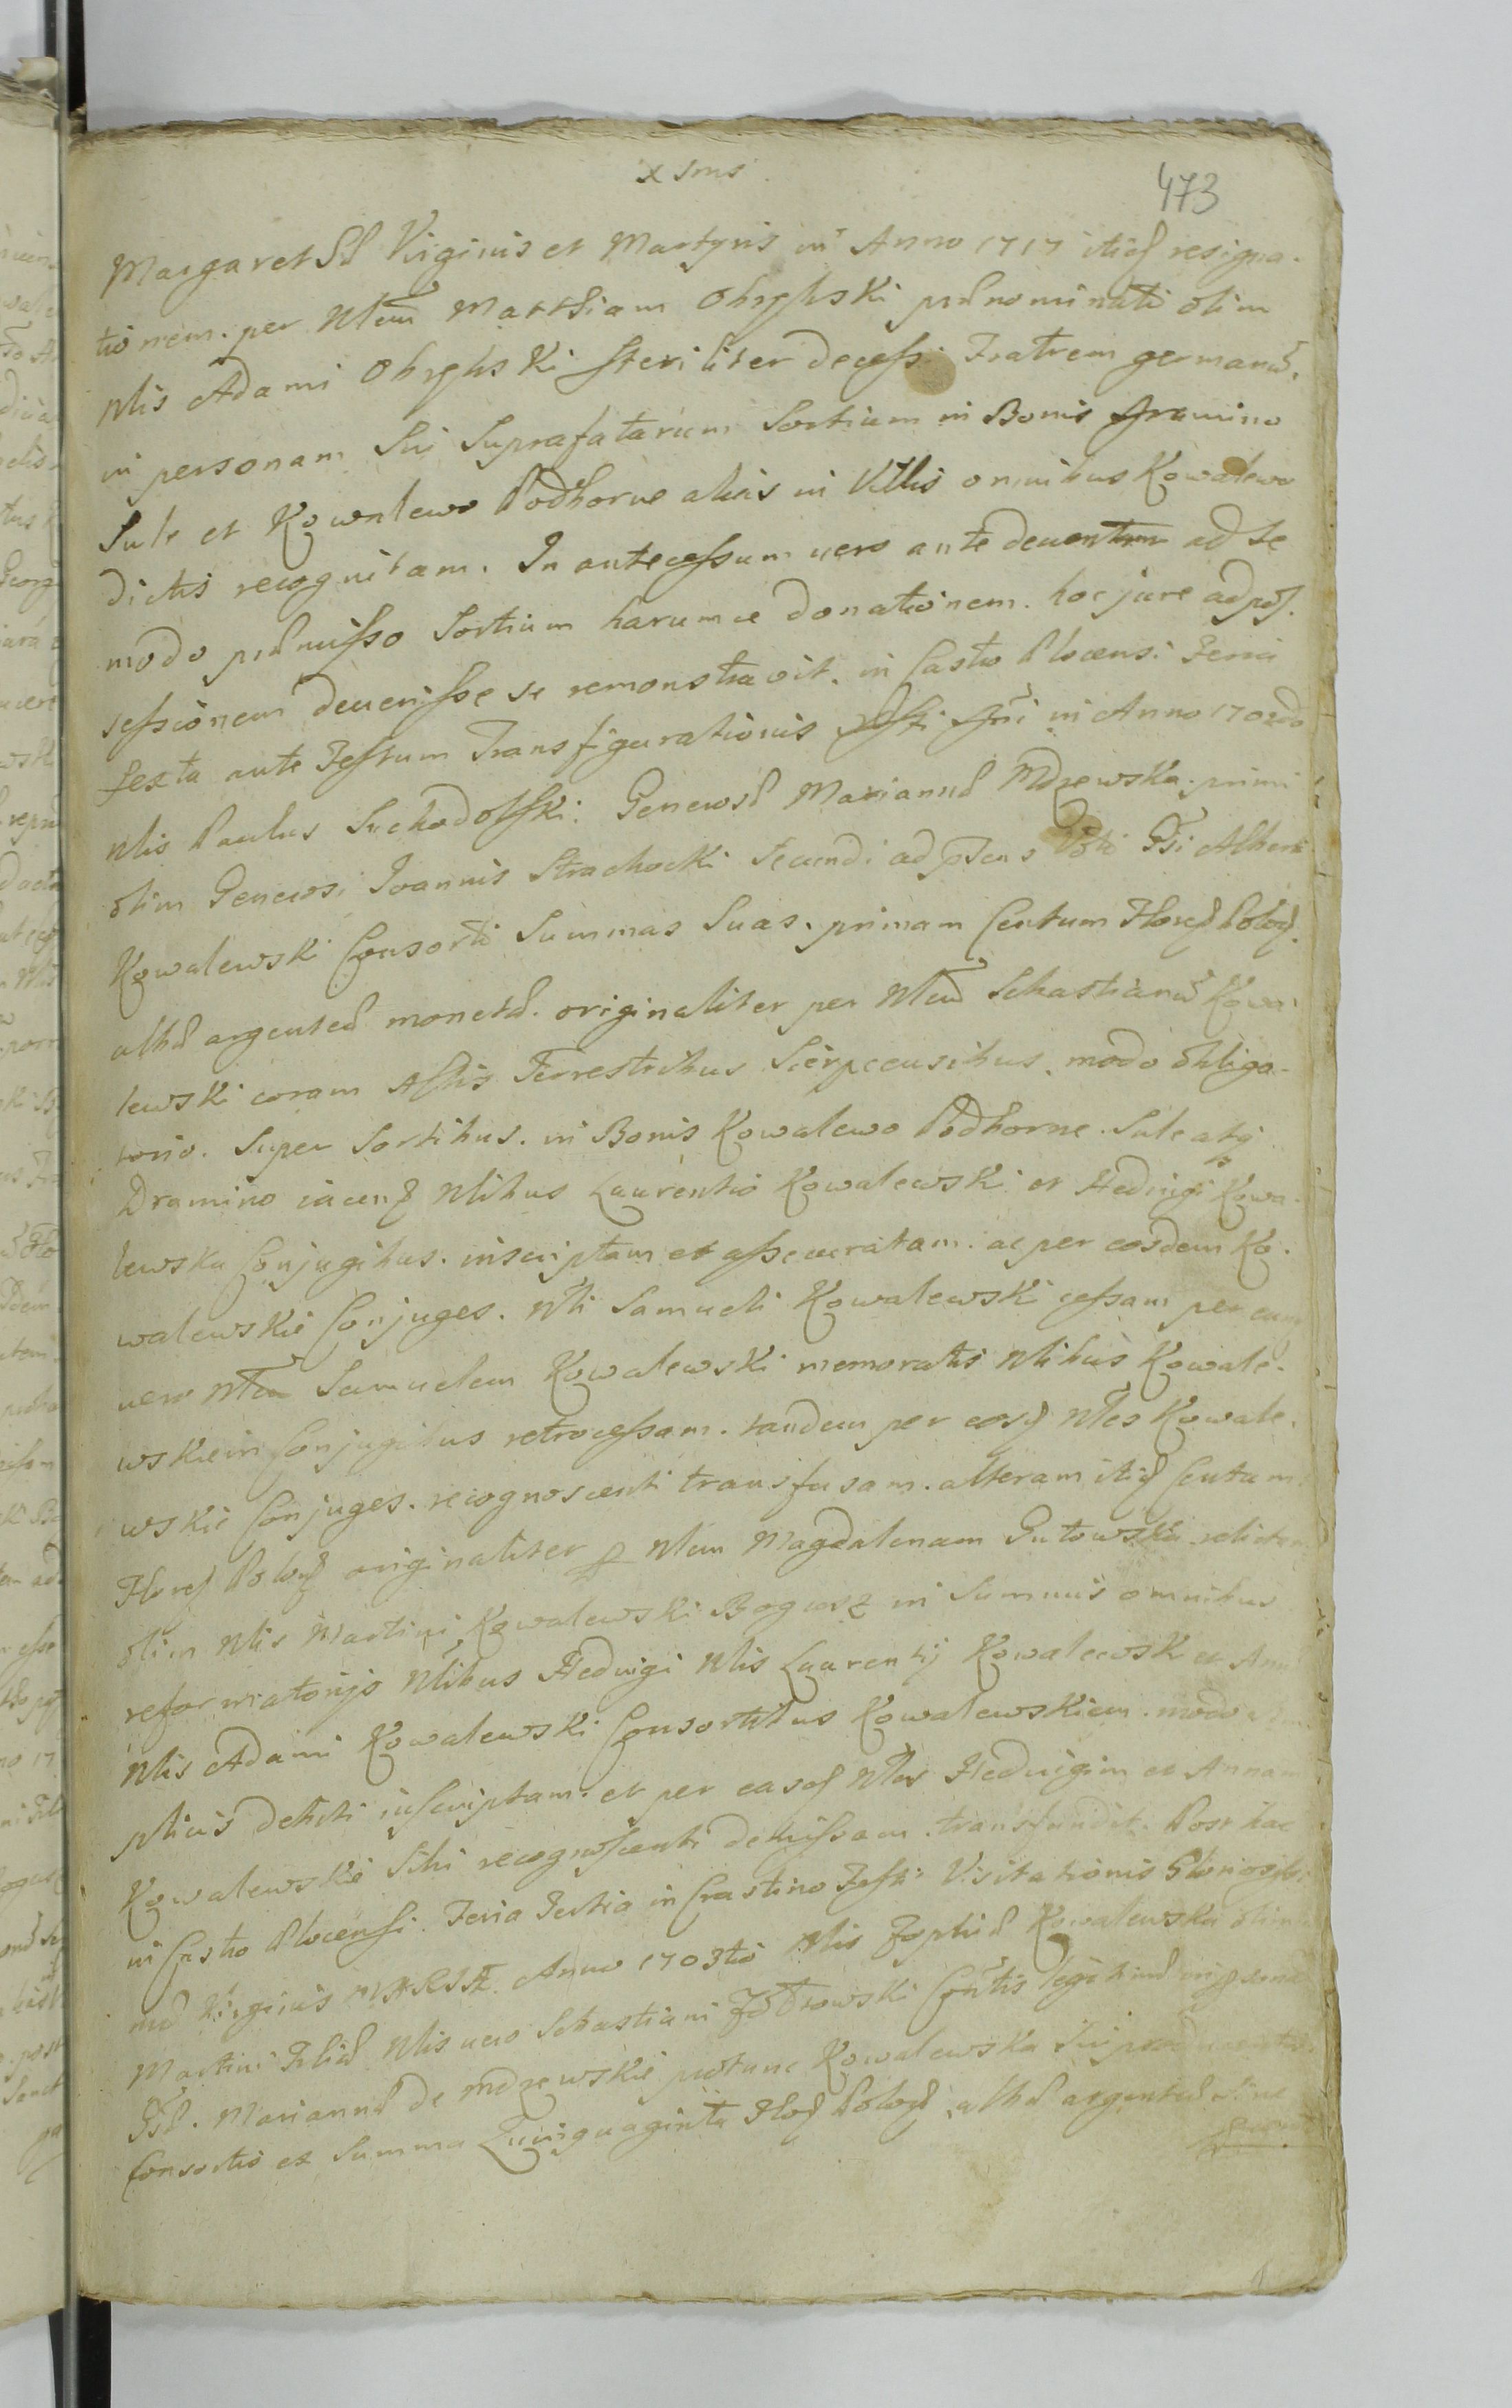 x sms
473
Margaret Virginis et Martyris in Anno 1717 resigna-
tionem. per Nlem Matthiam Obrębski prænominati olim
Nlis Adami Obrębski steriliter decessi Fratrem germanũ.
in personam Sui Suprafatarum Sortium in Bonis Dramino
Sule et Kowalewo Podborne alias in Villis omnibus Kowalewo
dictis recognitam. In antecessum vero ante ad se
modo præmisso Sortium harumce donationem. hoc jure ad pos-
sessionem devenisse se remonstravit. in Castro Plocensi Feria
Sexta ante Festum Transfigurationis Xsti Dni in Anno 1702do
Nlis Paulus Suchodolski. Generosæ Mariannæ Mdzewska. primi
olim Generosi Joannis Strachocki Secundi ad præsens Voti Gsi Alberti
Kowalewski Consorti Summas Suas. primam Centum Floren Polon.
albæ argenteæ monetæ. originaliter per Nlem Sebastianũ Kowa-
lewski coram Actis Terrestribus Sierpcensibus. modo obliga-
torio. Super Sortibus. in Bonis Kowalewo Podborne. Sule atq
Dramino jacen Nlibus Laurentio Kowalewski et Hedvigi Kowa-
lewska Conjugibus. inscriptam et assecuratam. ac per eosdem Ko-
walewskie Conjuges. Nli Samueli Kowalewski cessam per eum
vero Nlem Samuelem Kowalewski memoratis Nlibus Kowale-
wskiem Conjugibus retrocessam. tandem per eosd Nles Kowale-
wskie Conjuges. recognoscenti transfusam. alteram Centum
Floren Polon originaliter per Nlem Magdalenam Gutowska relictam
olim Nlis Martini Kowalewski Bogusz in Summis omnibus
reformatorijs Nlibus Hedvigi Nlis Laurentij Kowalewski et Annæ
Nlis Adami Kowalewski Consortibus Kowalewskiem. modo sim-
plicis debiti inscriptam. et per easd Nles Hedvigim et Annam
Kowalewskie Sibi recognoscenti demissam. transfundit. Post hac
in Castro Plocensi. Feria Tertia in Crastino Festi Visitationis Gloriosissi-
mæ Virginis MARIÆ Anno 1703tio Nlis Zophiæ Kowalewska olim
Martini Filiæ Nlis vero Sebastiani Conrtis legitimæ
Gsæ. Mariannæ de Mdzewskie protunc Kowalewska Sui
Consortio ex Summa Quinquaginta Flor Polon albæ argenteæ